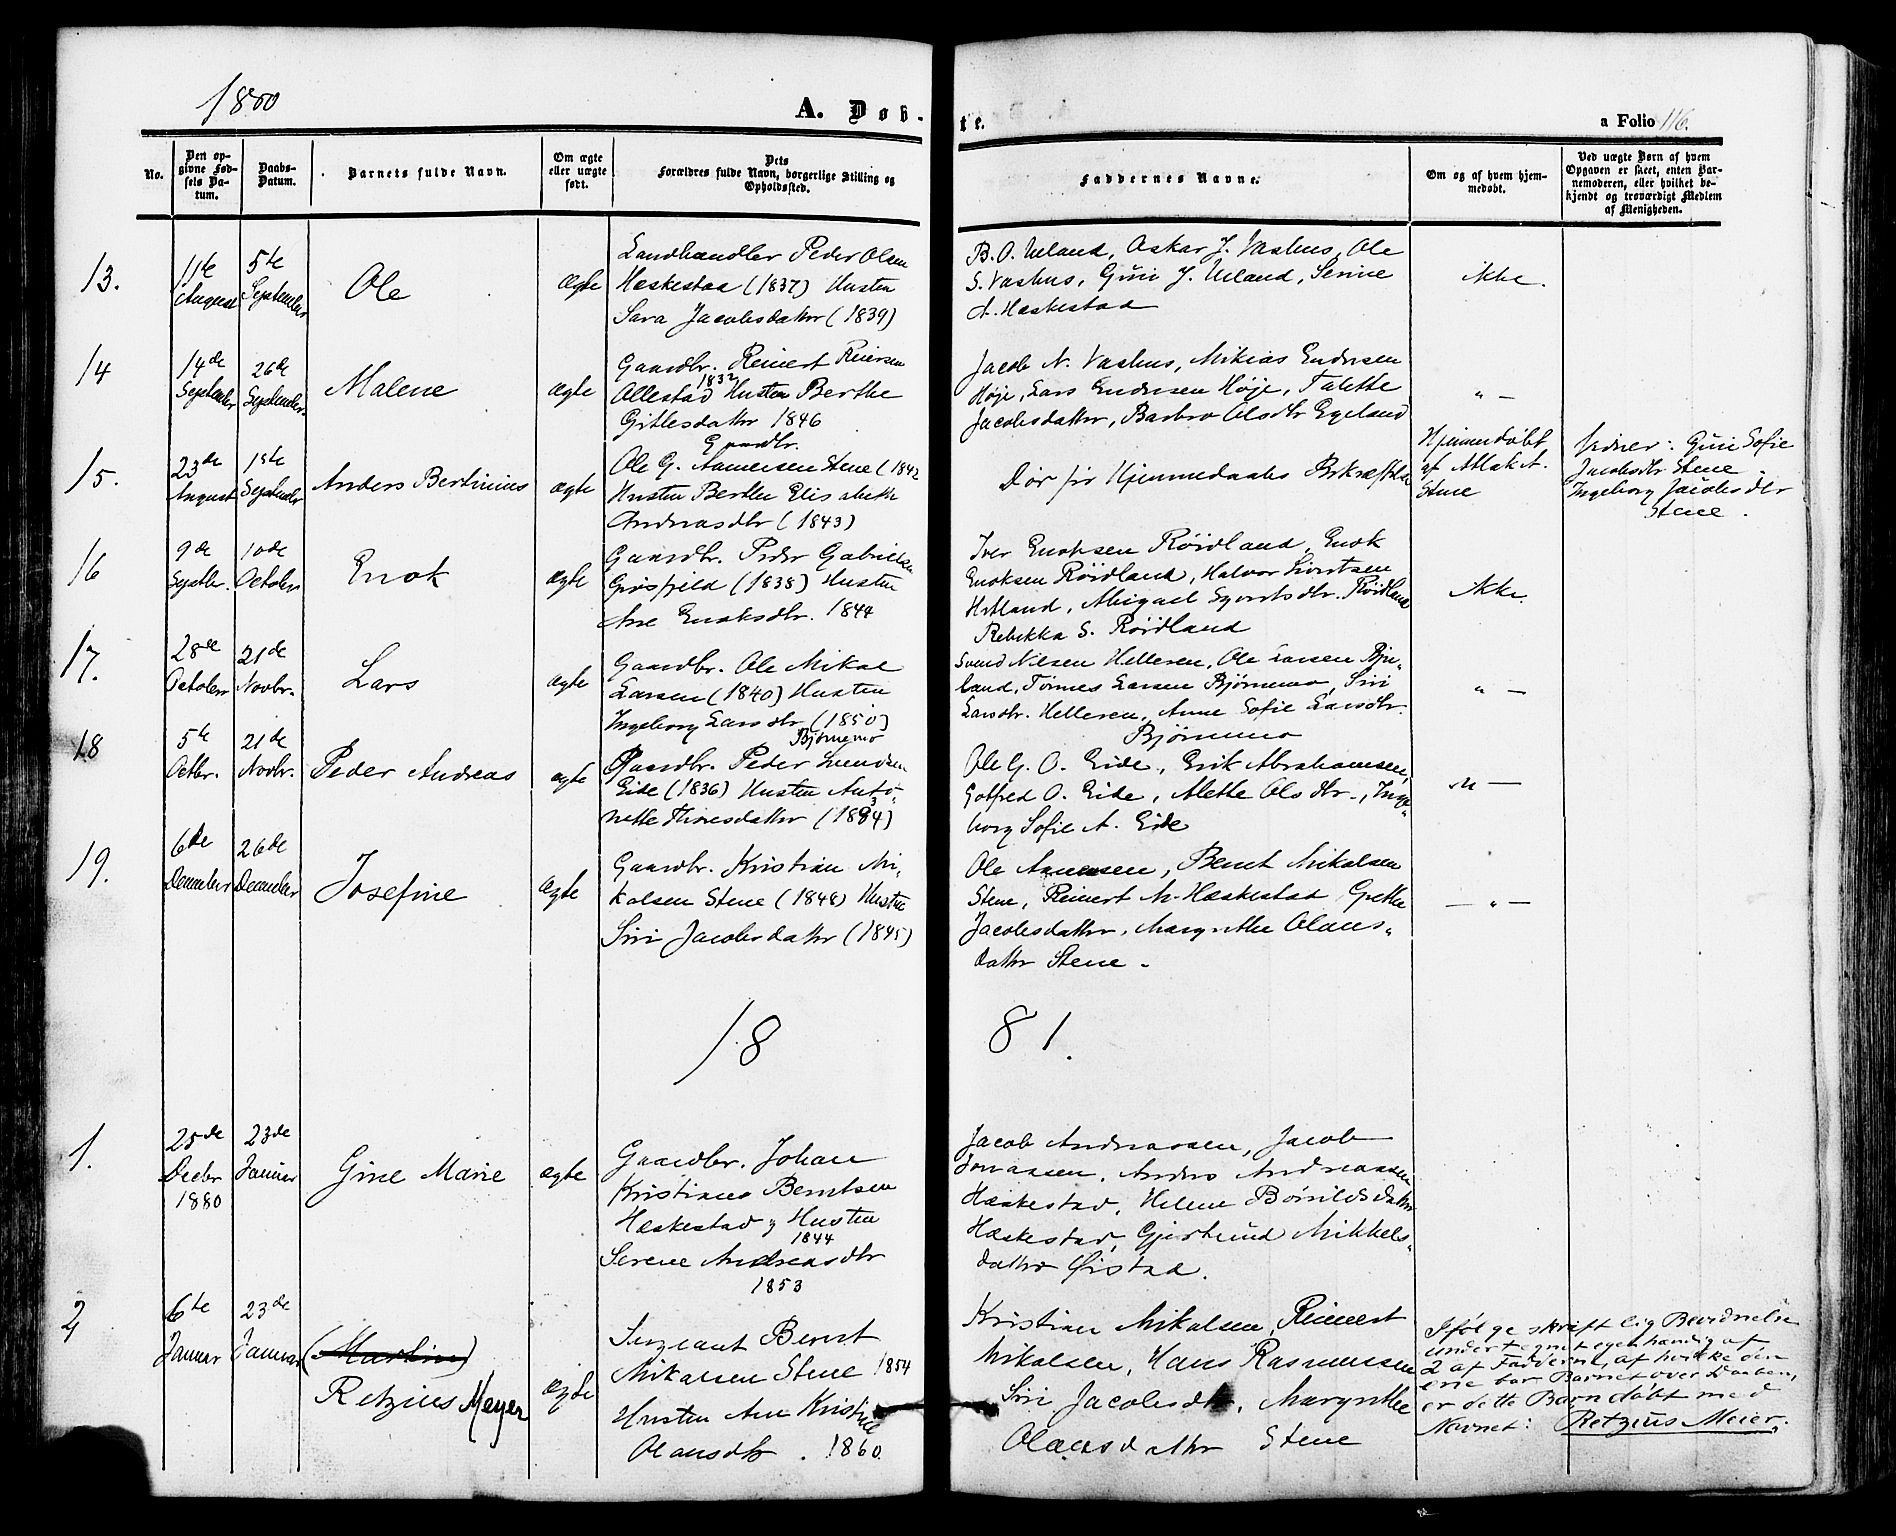 1880
A. Døb-
te.
a Folio 116.
No.
Den op-
givne Fød-
sels Da-
tum.
Daabs-
Datum.
Barnets fulde Navn.
Om ægte
eller uægte
født.
Dets
Forældres fulde Navn, borgerlige Stilling og
Opholdssted.
Faddernes Navne.
Om og af hvem hjem-
medøbt.
Ved uægte Børn af hvem
Opgaven er skeet, enten Bar-
nemoderen, eller hvilket be-
kjendt og troværdigt Medlem
af Menigheden.
13.
11te
August
5te
September
Ole
ægte
Landhandler Peder Olsen
Hæskestad (1837) Hustru
Sara Jacobsdatter (1839)
B. O. Ueland, Oskar J. Vashus, Ole
S. Vashus, Guri J. Ueland, Serine
A. Hæskestad
ikke.
14
14de
September
26de
September.
Malene
ægte
Gaardbr. Reinert Reiersen
1832
Ollestad Hustru Berthe
Gitlesdatter 1846
Jacob N. Vashus, Mikias Endresen
Høje, Lars Endresen Høje, Talette
Jacobsdatter, Barbro Olsdtr Egeland
" —
15.
23de
August
1ste
September
Anders Bertinius
ægte
Gaardbr.
Ole G. Aamersen Stene (1842
Hustru Berthe Elisabeth
Andreasdtr (1843)
Dør før Hjemmedaabs Bekræftelse
Hjemmedøbt
af Aslak A.
Stene
Vidner: Guri Sofie
Jacobsdtr Stene.
Ingeborg Jacobsdtr
Stene.
16
9de
Septbr.
10de
October
Enok
ægte
Gaardbr. Peder Gabrielsen
Grøsfjeld (1838) Hustru
Ane Enoksdtr. 1844
Iver Enoksen Røidland, Enok
Enoksen Røidland, Halvor Sivertsen
Hetland, Abigael Sivertsdtr. Røidland
Rebekka S. Røidland
ikke.
17.
28de
October
21de
Novbr.
Lars
ægte
Gaardbr. Ole Mikal
Larsen (1840) Hustru
Ingeborg Larsdtr (1850)
Bjørnemo
Svend Nilsen Helleren, Ole Larsen Bju-
land, Tønnes Larsen Bjørnemo, Siri
Larsdtr. Helleren, Anne Sofie Larsdtr.
Bjørnemo
" —
18
5te
Octbr.
21de
Novbr.
Peder Andreas
ægte
Gaardbr. Peder Svendsen
Eide (1836) Hustru Anto-
nette Thoresdatter (1834)
Ole G. O. Eide, Erik Abrahamsen,
Gotfred O. Eide, Alette Olsdtr., Inge-
borg Sofie A. Eide
" —
19.
6te
December
26de
December
Josefine
ægte
Gaardbr. Kristian Mi-
kalsen Stene (1848) Hustru
Siri Jacobsdatter (1845)
Ole Aamersen, Bernt Mikalsen
Stene, Reinert M. Hæskestad Grethe
Jacobsdatter, Margrethe Olaus-
datter Stene.
— " —
18
81.
1.
25de
Decbr
1880
23de
Januar
Gine Marie
ægte
Gaardbr. Johan
Kristiano Berntsen
Hæskestad og Hustru
1844
Serene Andreasdtr
1853
Jacob Andreassen, Jacob
Jonassen, Anders Andreassen
Hæskestad, Helene Bøvildsdatter
Hæskestad, Gjertrud Mikkels-
datter Øistad.
2
6te
Januar
23de
Januar
(Martin)
Retzius Meyer
ægte
Sergeant Bernt
Mikalsen Stene 1854
Hustru Ane Kristine
Olausdtr. 1860
Kristian Mikalsen, Reinert
Mikalsen, Hans Rasmussen
Siri Jacobsdtr, Margrethe
Olausdatter Stene
Ifølge skriftlig Bevidnelse
undertegnet egenhændig af
2 af Fadderne, af hvilke den
ene bar Barnet over Daaben,
er dette Barn døbt med
Navnet: Retzius Meier.